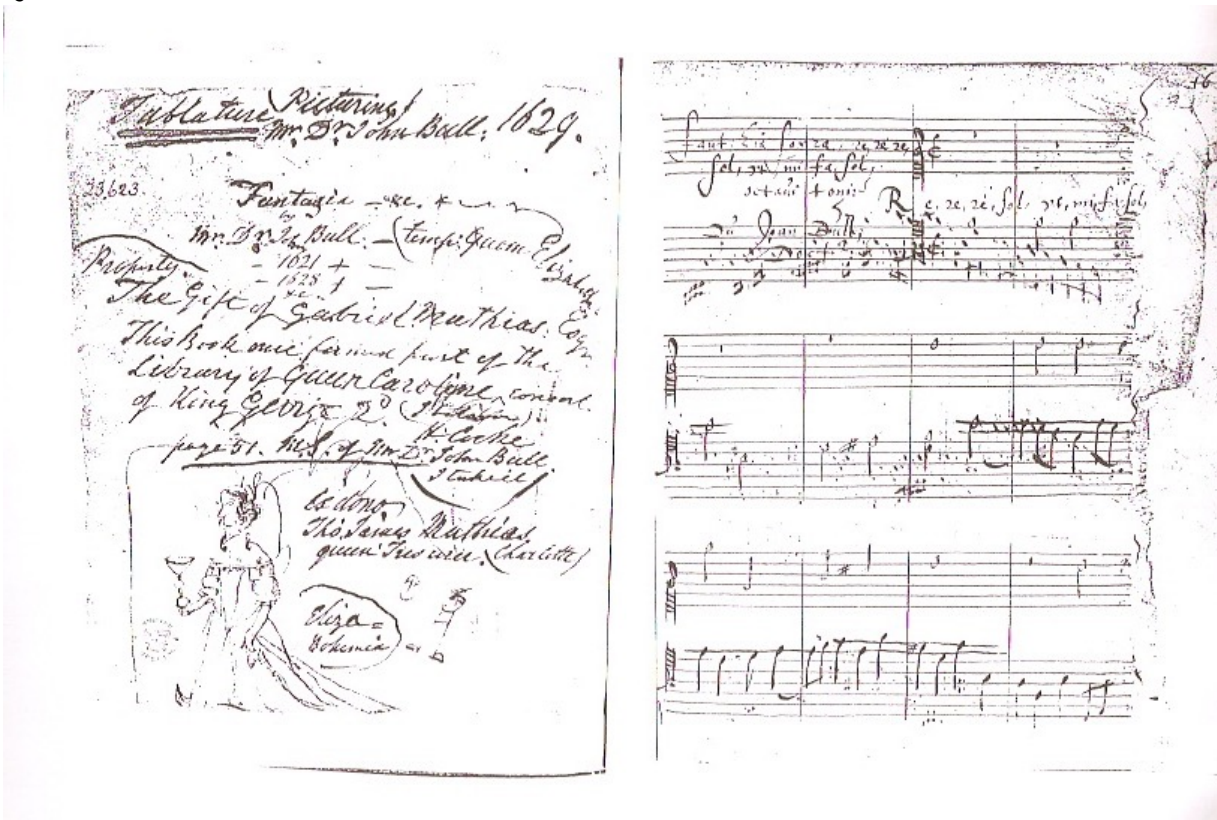 Tablature (Picturing)
Mr. Dr. John Bull. 1629.
23623.
Fantazia - &c. *
by
Mr. Dr. Jn. Bull. - (temp: Queen Elizabeth
- 1621 + -
- 1628 + -
&c.
Property.
The Gift of Gabriel Mathias. Esqr.
This Book once formed part of the
Library of Queen Caroline, consort
of King George 2d
H. Cooke
page 51. M.S. of Mr. Dr. John Bull
I think
Ex dono
Tho. James Mathias
queen's Treasurer. (Charlotte)
Eliza =
Bohemia
16
re, re, re
sol, re, mi fa sol,
octavi toni
Re, re, re, sol, re, mi, fa sol,
Du Joan Bull,
Doct